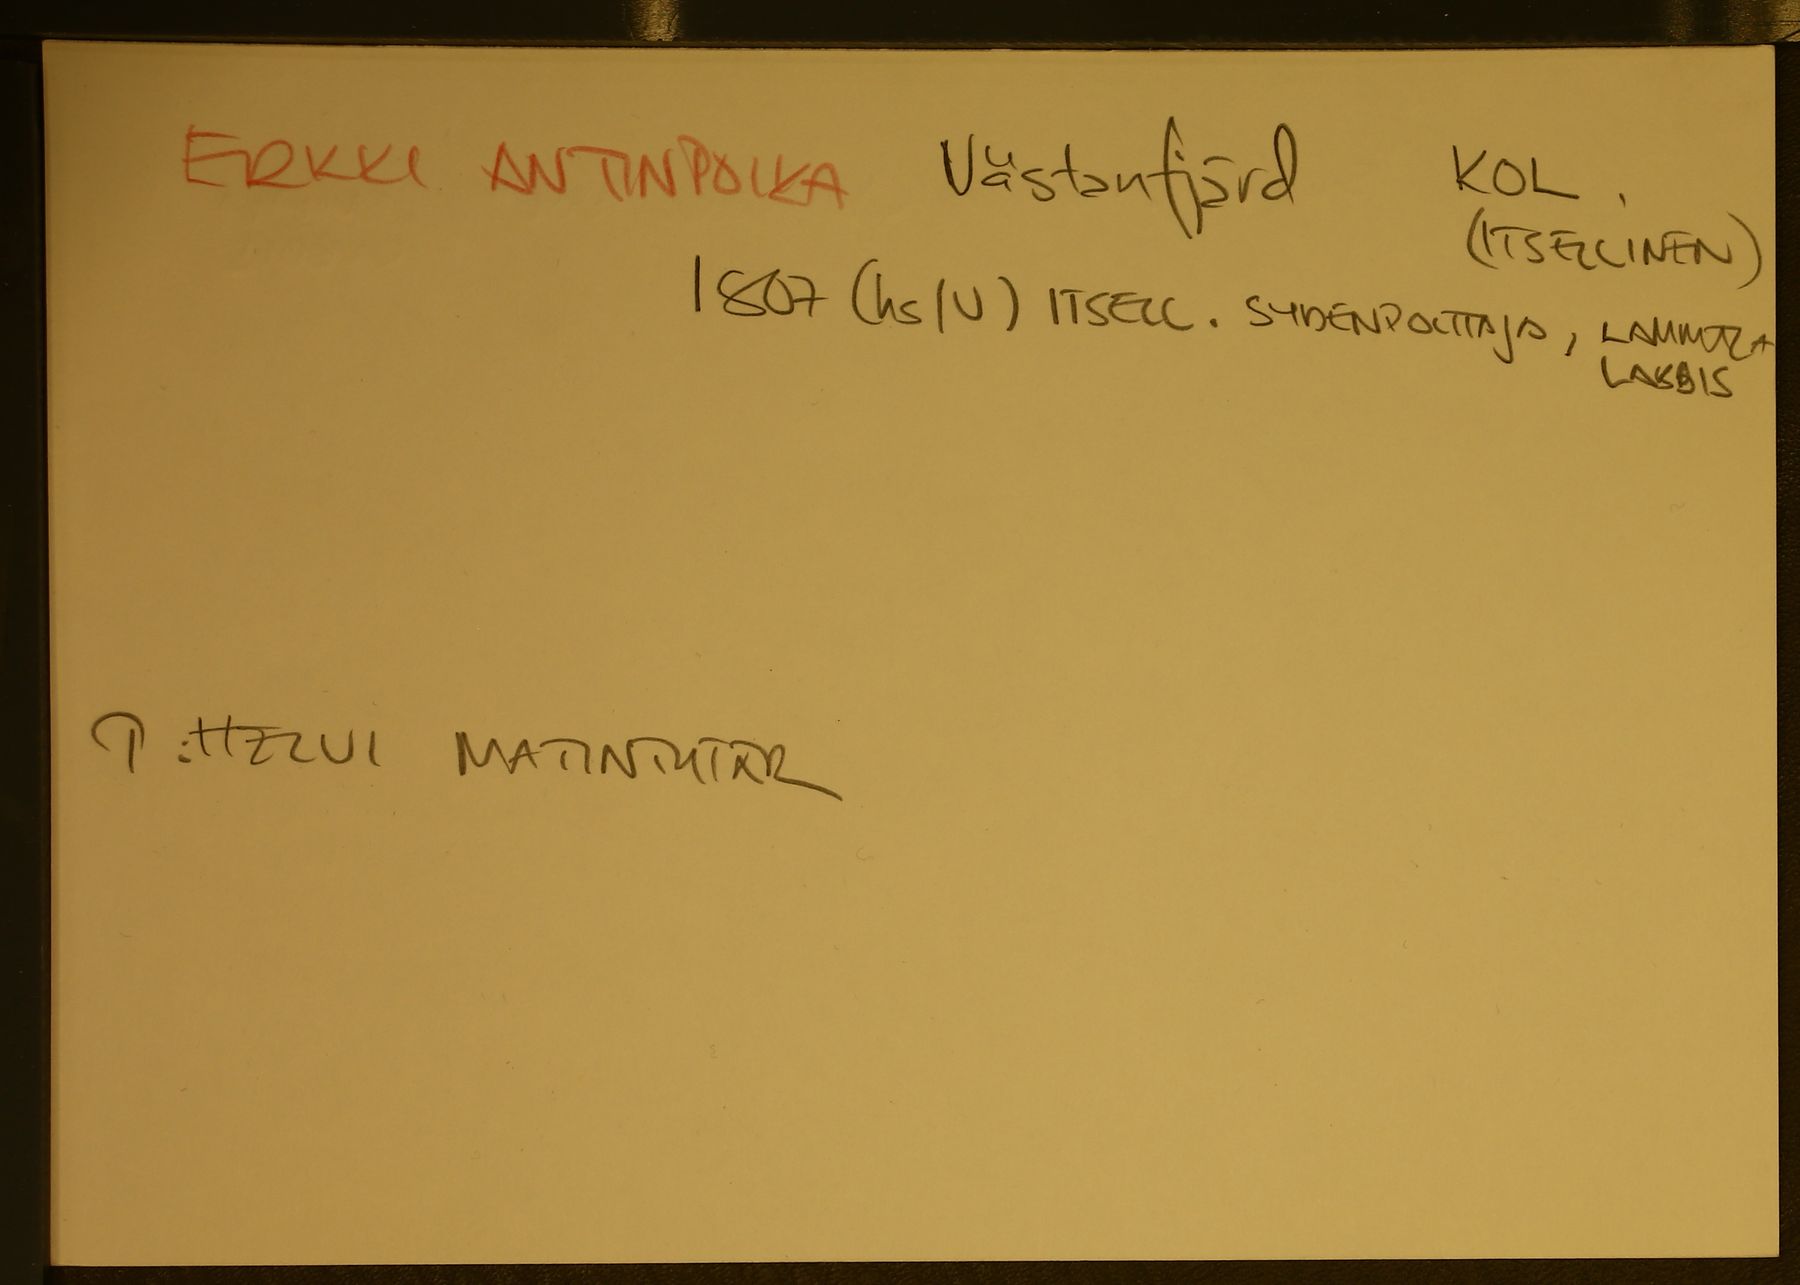 ERKKI ANTINPOIKA Västanfjärd KOL.
(ITSELLINEN)
1807 (hs/U) ITSELL. SYDENPOLTTAJA, LAMMALA
LAKSIS
P: HELVI MATINTYTÄR